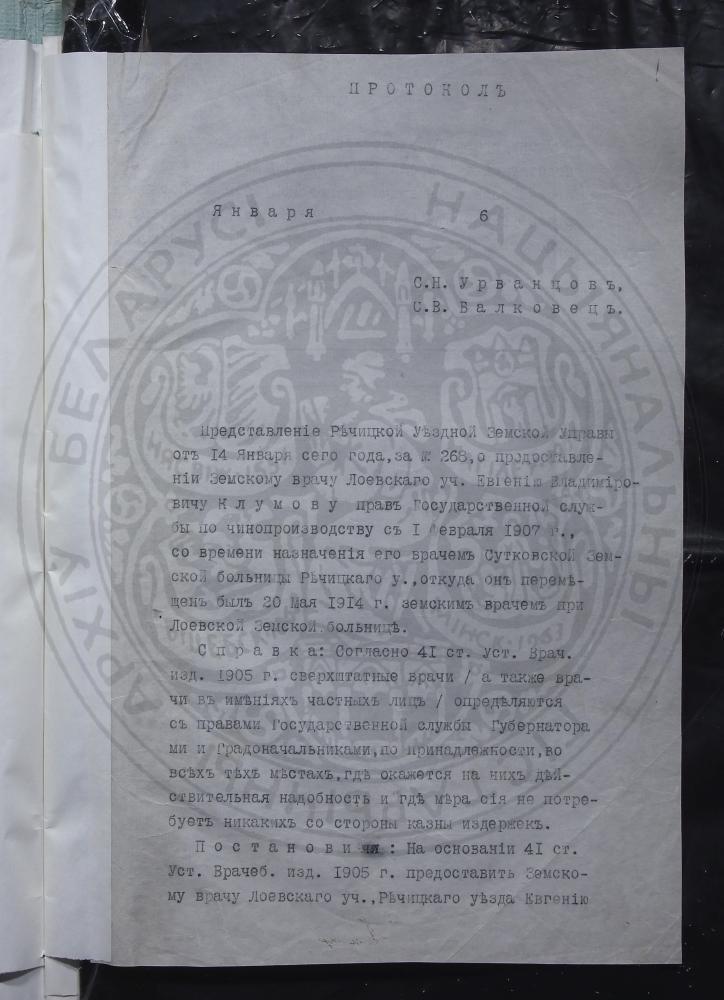 ПРОТОКОЛЪ
Января 6
С.Н. Урванцовъ,
С.В. Балковецъ.
Представленіе Рѣчицкой Уѣздной Земской Управы
отъ 14 Января сего года, за № 268, о предоставле-
ніи Земскому врачу Лоевскаго уч. Евгенію Владиміро-
вичу Клумову правъ Государственной служ-
бы по чинопроизводству съ I февраля 1907 г.,
со времени назначенія его врачемъ Сутковской Зем-
ской больницы Рѣчицкаго у., откуда онъ перемѣ-
щенъ былъ 20 Мая 1914 г. земскимъ врачемъ при
Лоевской Земской больницѣ.
Справка: Согласно 41 ст. Уст. Врач.
изд. 1905 г. сверхштатные врачи / а также вра-
чи въ имѣніяхъ частныхъ лицъ / опредѣляются
съ правами Государственной службы Губернатора
ми и Градоначальниками, по принадлежности, во
всѣхъ тѣхъ мѣстахъ, гдѣ окажется на нихъ дѣй-
ствительная надобность и гдѣ мѣра сія не потре-
буетъ никакихъ со стороны казны издержек.
Постановили: На основаніи 41 ст.
Уст. Врачеб. изд. 1905 г. предоставить Земско-
му врачу Лоевскаго уч., Рѣчицкаго уѣзда Евгенію
НАЦЫЯНАЛЬНЫ
АРХІЎ БЕЛАРУСІ